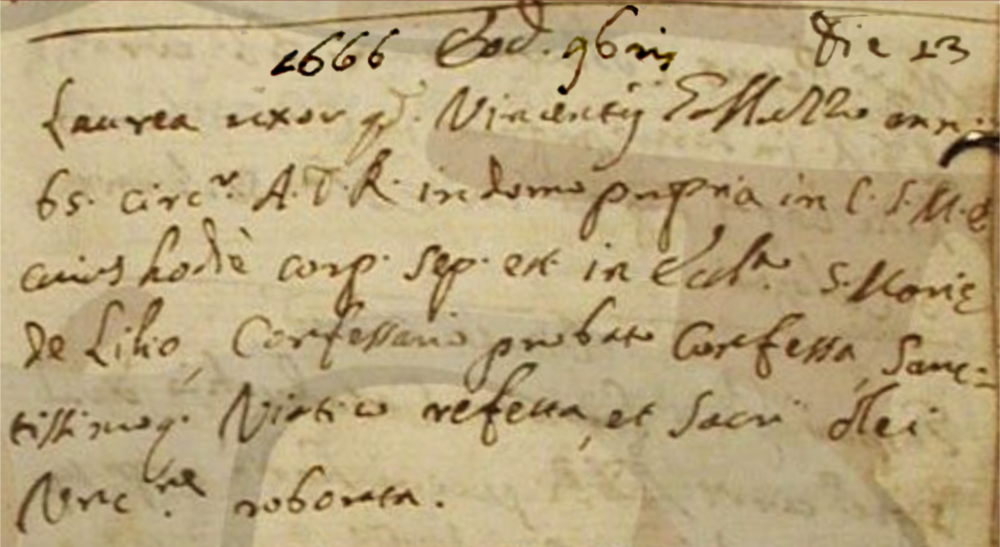 1666 Eod. 9bris Die 13
Laurea uxor qd. Vincentij anno
65. circr. A.D.R. in domo propria in C.S.M.E
cuius hodiè corp. sep. est in Eccla. S. Marie
de Lilio, Confessario probato Confessa, Sanc=
tissimoq. Viatico refecta, et Sacri Olei
Unc.ne roborata.